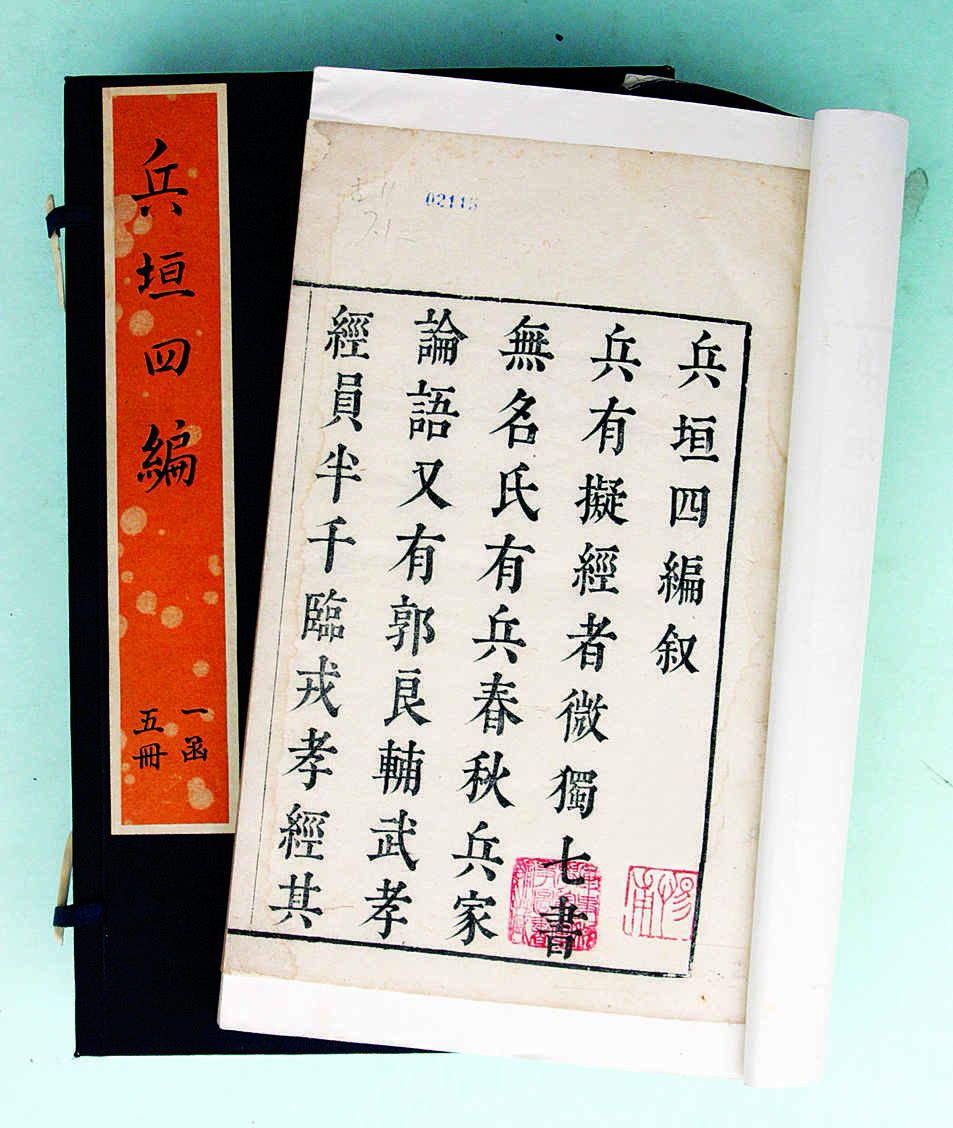 兵垣四編
一函
五冊
02115
兵垣四編叙
兵有擬經者微獨七書
無名氏有兵春秋兵家
論語又有郭良輔武孝
經員半千臨戎孝經其